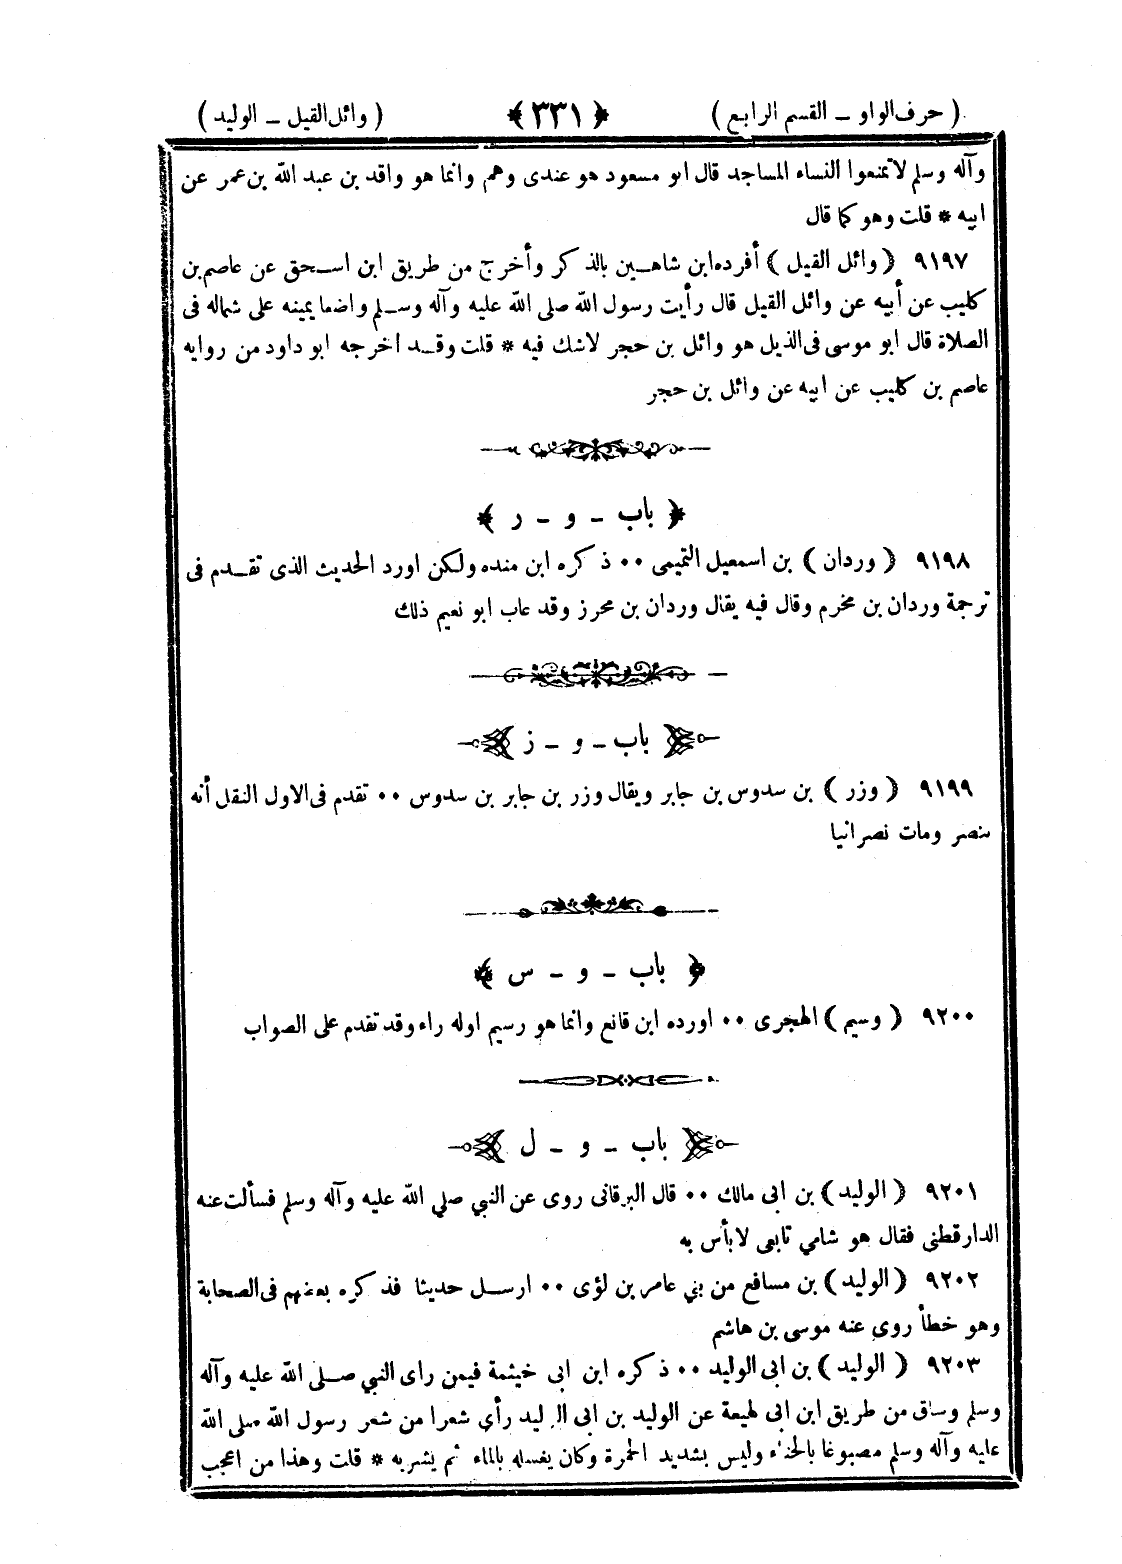 ( حرف الواو – القسم الرابع ) ﴿ ٣٣١ ﴾ ( وائل القيل – الوليد )
وآله وسلم لا تمنعوا النساء المساجد قال ابو مسعود هو عندى وهم وانما هو واقد بن عبد الله بن عمر عن
ابيه * قلت وهو كما قال
٩١٩٧ ( وائل القيل ) أفرده ابن شاهين بالذكر وأخرج من طريق ابن اسحق عن عاصم بن
كليب عن أبيه عن وائل القيل قال رأيت رسول الله صلى الله عليه وآله وسلم واضعا يمينه على شماله فى
الصلاة قال ابو موسى فى الذيل هو وائل بن حجر لاشك فيه * قلت وقد اخرجه ابو داود من روايه
عاصم بن كليب عن ابيه عن وائل بن حجر
﴿ باب – و – ر ﴾
٩١٩٨ ( وردان ) بن اسمعيل التميمى ٠٠ ذكره ابن منده ولكن اورد الحديث الذى تقدم فى
ترجمة وردان بن مخرم وقال فيه يقال وردان بن محرز وقد عاب ابو نعيم ذلك
باب – و – ز
٩١٩٩ ( وزر ) بن سدوس بن جابر ويقال وزر بن جابر بن سدوس ٠٠ تقدم فى الاول النقل أنه
تنصر ومات نصرانيا
﴿ باب – و – س ﴾
٩٢٠٠ ( وسيم ) الهجرى ٠٠ اورده ابن قانع وانما هو رسيم اوله راء وقد تقدم على الصواب
باب – و – ل
٩٢٠١ ( الوليد ) بن ابى مالك ٠٠ قال البرقانى روى عن النبي صلي الله عليه وآله وسلم فسألت عنه
الدارقطنى فقال هو شامي تابعى لابأس به
٩٢٠٢ ( الوليد ) بن مسافع من بني عامر بن لؤى ٠٠ ارسل حديثا فذكره بعضهم فى الصحابة
وهو خطأ روى عنه موسى بن هاشم
٩٢٠٣ ( الوليد ) بن ابى الوليد ٠٠ ذكره ابن ابى خيثمة فيمن راى النبي صلى الله عليه وآله
وسلم وساق من طريق ابن ابى لهيعة عن الوليد بن ابى الوليد رأى شعرا من شعر رسول الله صلى الله
عليه وآله وسلم مصبوغا بالحناء وليس بشديد الحمرة وكان يغسله بالماء ثم يشربه * قلت وهذا من اعجب